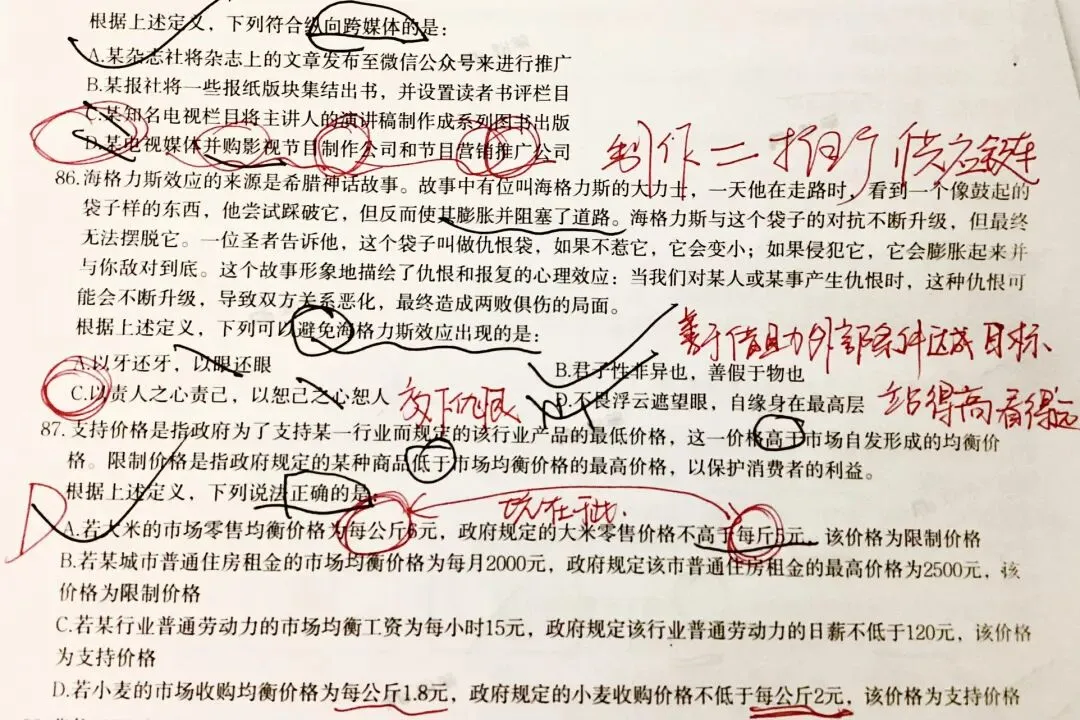 根据上述定义，下列符合纵向跨媒体的是：
A.某杂志社将杂志上的文章发布至微信公众号来进行推广
B.某报社将一些报纸版块集结出书，并设置读者书评栏目
C.某知名电视栏目将主讲人的演讲稿制作成系列图书出版
D.某电视媒体并购影视节目制作公司和节目营销推广公司
制作—推广 供应链
86.海格力斯效应的来源是希腊神话故事。故事中有位叫海格力斯的大力士，一天他在走路时，看到一个像鼓起的
袋子样的东西，他尝试踩破它，但反而使其膨胀并阻塞了道路。海格力斯与这个袋子的对抗不断升级，但最终
无法摆脱它。一位圣者告诉他，这个袋子叫做仇恨袋，如果不惹它，它会变小；如果侵犯它，它会膨胀起来并
与你敌对到底。这个故事形象地描绘了仇恨和报复的心理效应：当我们对某人或某事产生仇恨时，这种仇恨可
能会不断升级，导致双方关系恶化，最终造成两败俱伤的局面。
根据上述定义，下列可以避免海格力斯效应出现的是：
善于借助外部条件达成目标
A.以牙还牙，以眼还眼
B.君子性非异也，善假于物也
C.以责人之心责己，以恕己之心恕人
放下仇恨
D.不畏浮云遮望眼，自缘身在最高层
站得高看得远
87.支持价格是指政府为了支持某一行业而规定的该行业产品的最低价格，这一价格高于市场自发形成的均衡价
格。限制价格是指政府规定的某种商品低于市场均衡价格的最高价格，以保护消费者的利益。
根据上述定义，下列说法正确的是：
D
坑在于此
A.若大米的市场零售均衡价格为每公斤6元，政府规定的大米零售价格不高于每斤5元，该价格为限制价格
B.若某城市普通住房租金的市场均衡价格为每月2000元，政府规定该市普通住房租金的最高价格为2500元，该
价格为限制价格
C.若某行业普通劳动力的市场均衡工资为每小时15元，政府规定该行业普通劳动力的日薪不低于120元，该价格
为支持价格
D.若小麦的市场收购均衡价格为每公斤1.8元，政府规定的小麦收购价格不低于每公斤2元，该价格为支持价格